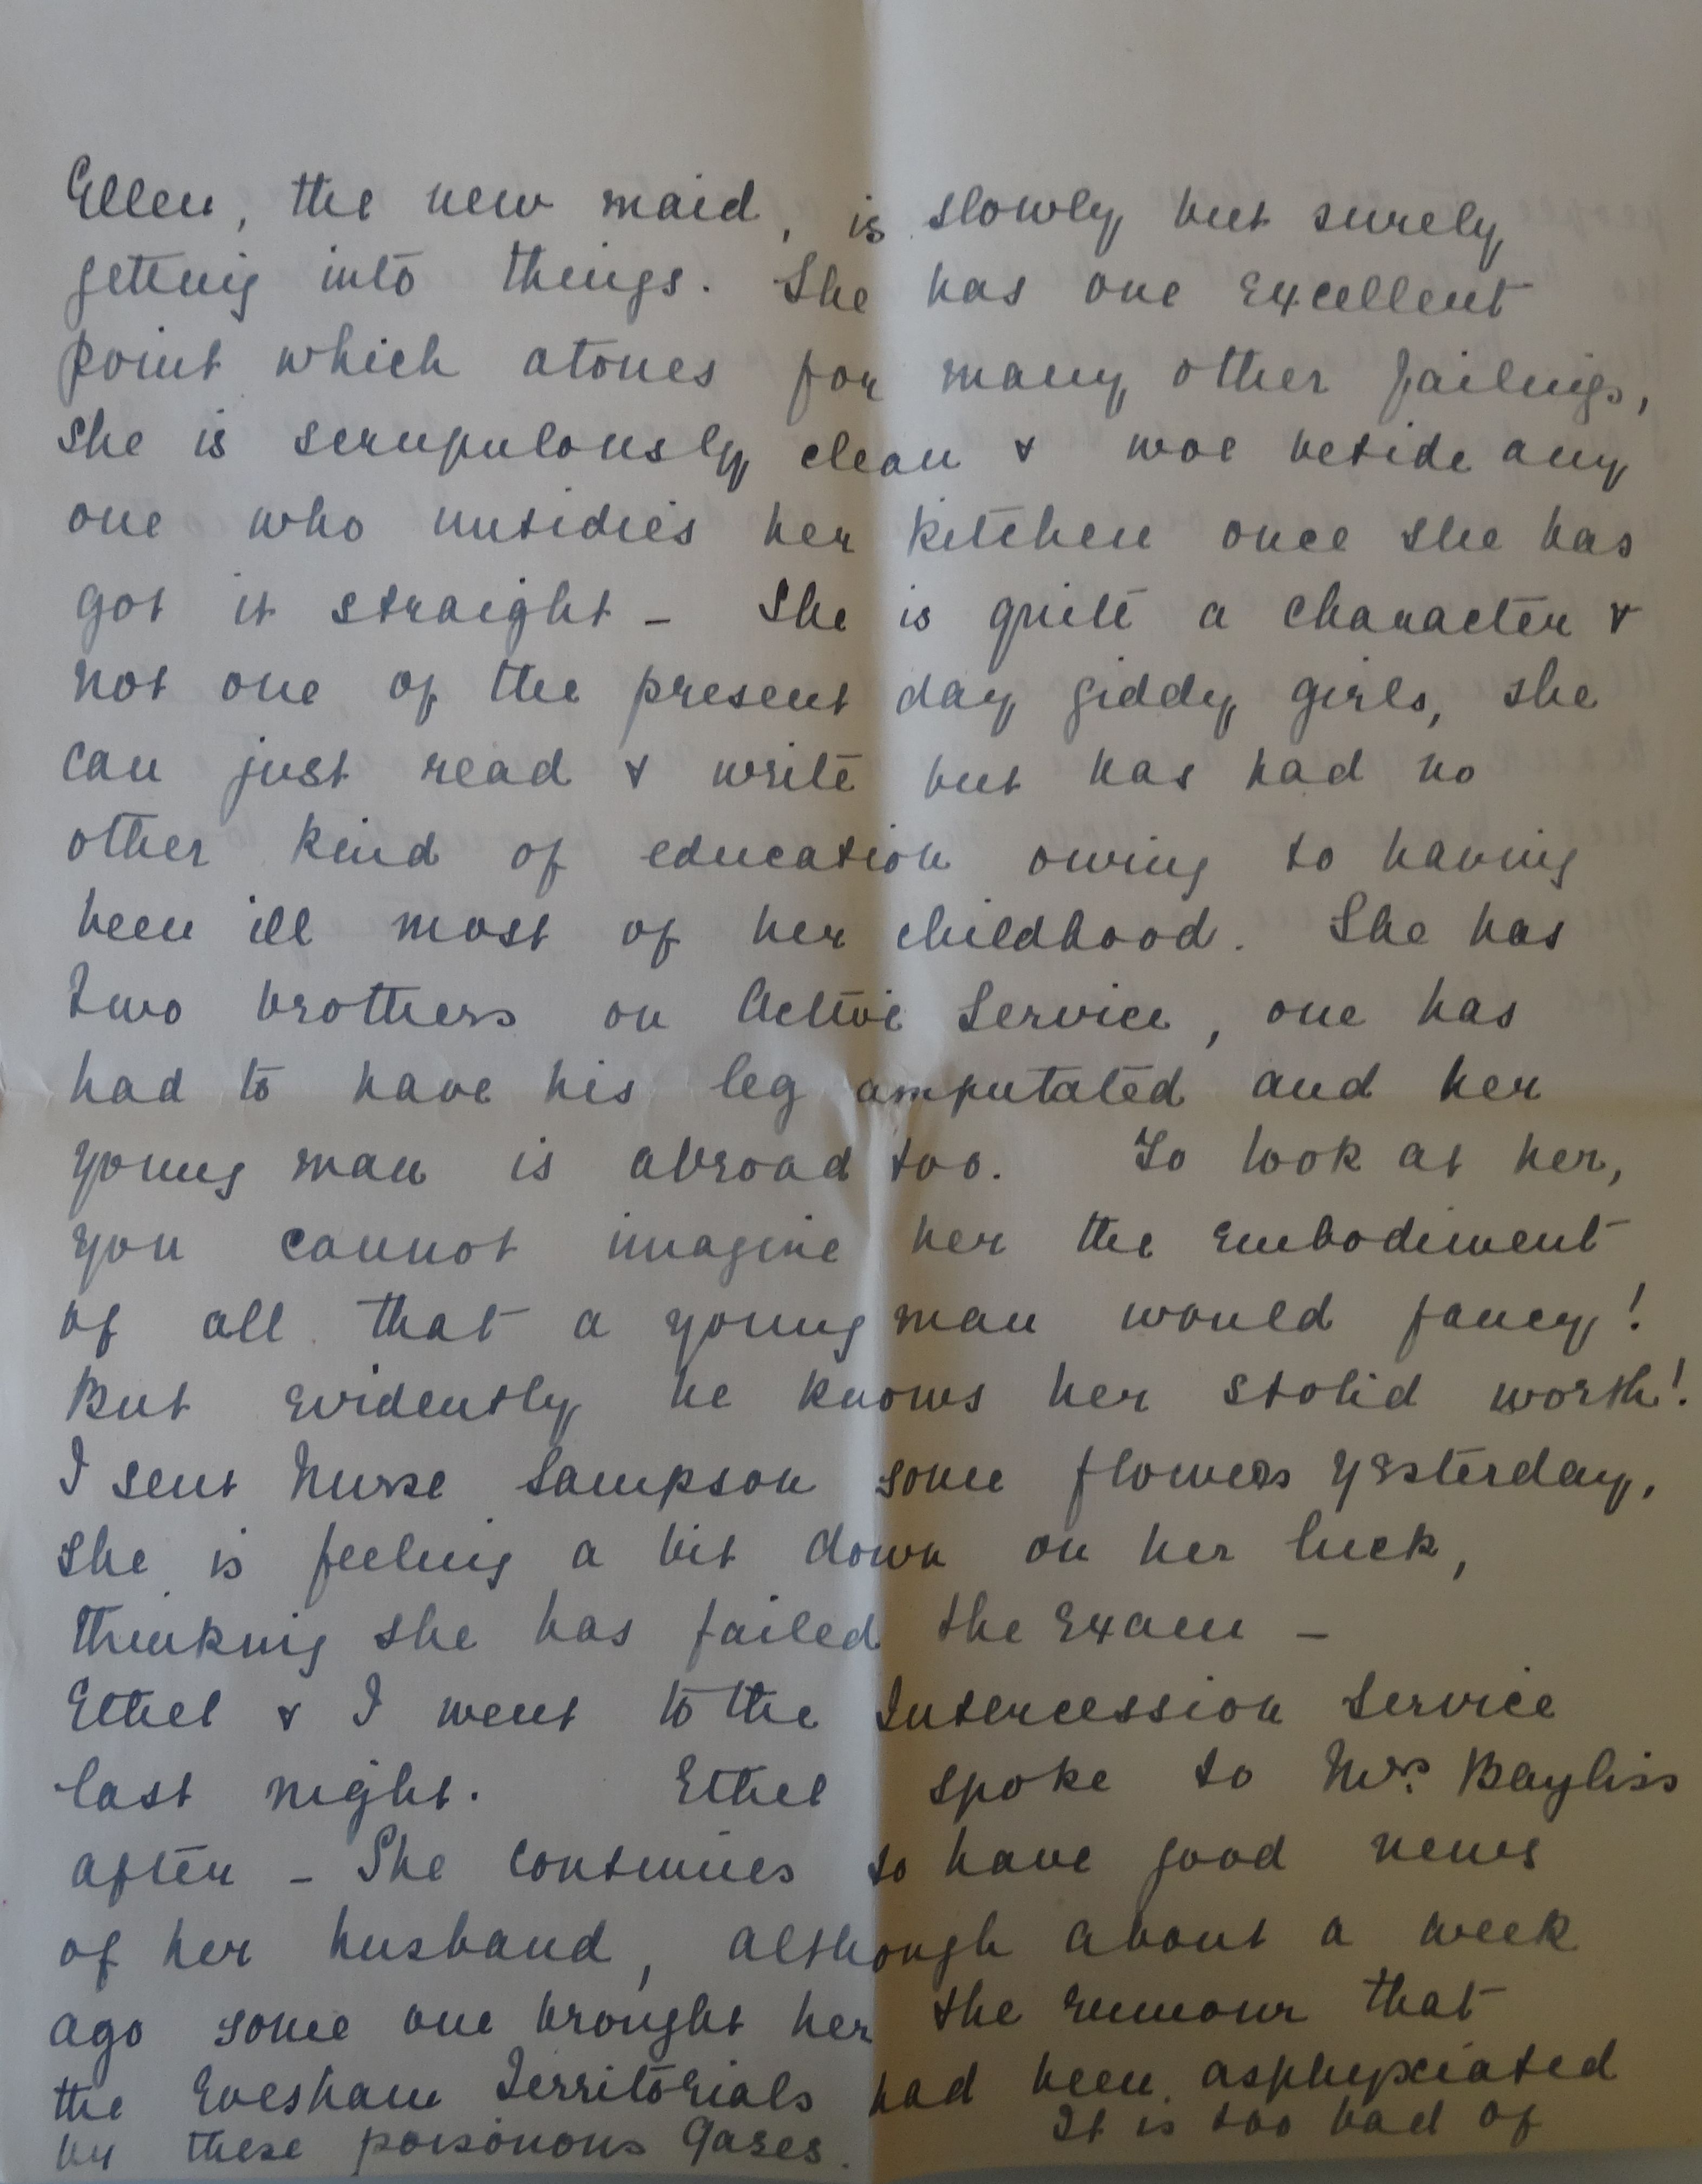 Ellen, the new maid, is slowly but surely
getting into things. She has one excellent
point which atones for many other failings,
she is scrupulously clean & woe betide any
one who untidies her kitchen once she has
got it straight - She is quite a character &
not one of the present day giddy girls, she
can just read & write but has had no
other kind of education owing to having
been ill most of her childhood. She has
two brothers on Active Service, one has
had to have his leg amputated and her
young man is abroad too. To look at her,
you cannot imagine her the embodiment
of all that a young man would fancy!
But evidently he knows her stolid worth!
I sent Nurse Sampson some flowers yesterday,
she is feeling a bit down on her luck,
thinking she has failed the exam -
Ethel & I went to the Intercession Service
last night. Ethel spoke to Mrs. Bayliss
after - She continues to have good news
of her husband, although about a week
ago some one brought her the rumour that
the Evesham Territorials had been asphyxiated
by these poisonous gases. It is too bad of